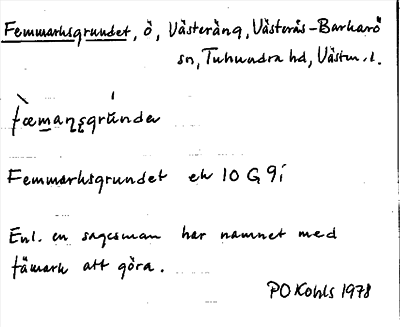 Femmarksgrundet, ö, Västeräng, Västerås-Barkarö
sn, Tuhundra hd, Västm. l.
Femmarksgrundet ek 10 G 9i
Enl. en sagesman har namnet med
fämark att göra.
PO Kohls 1978